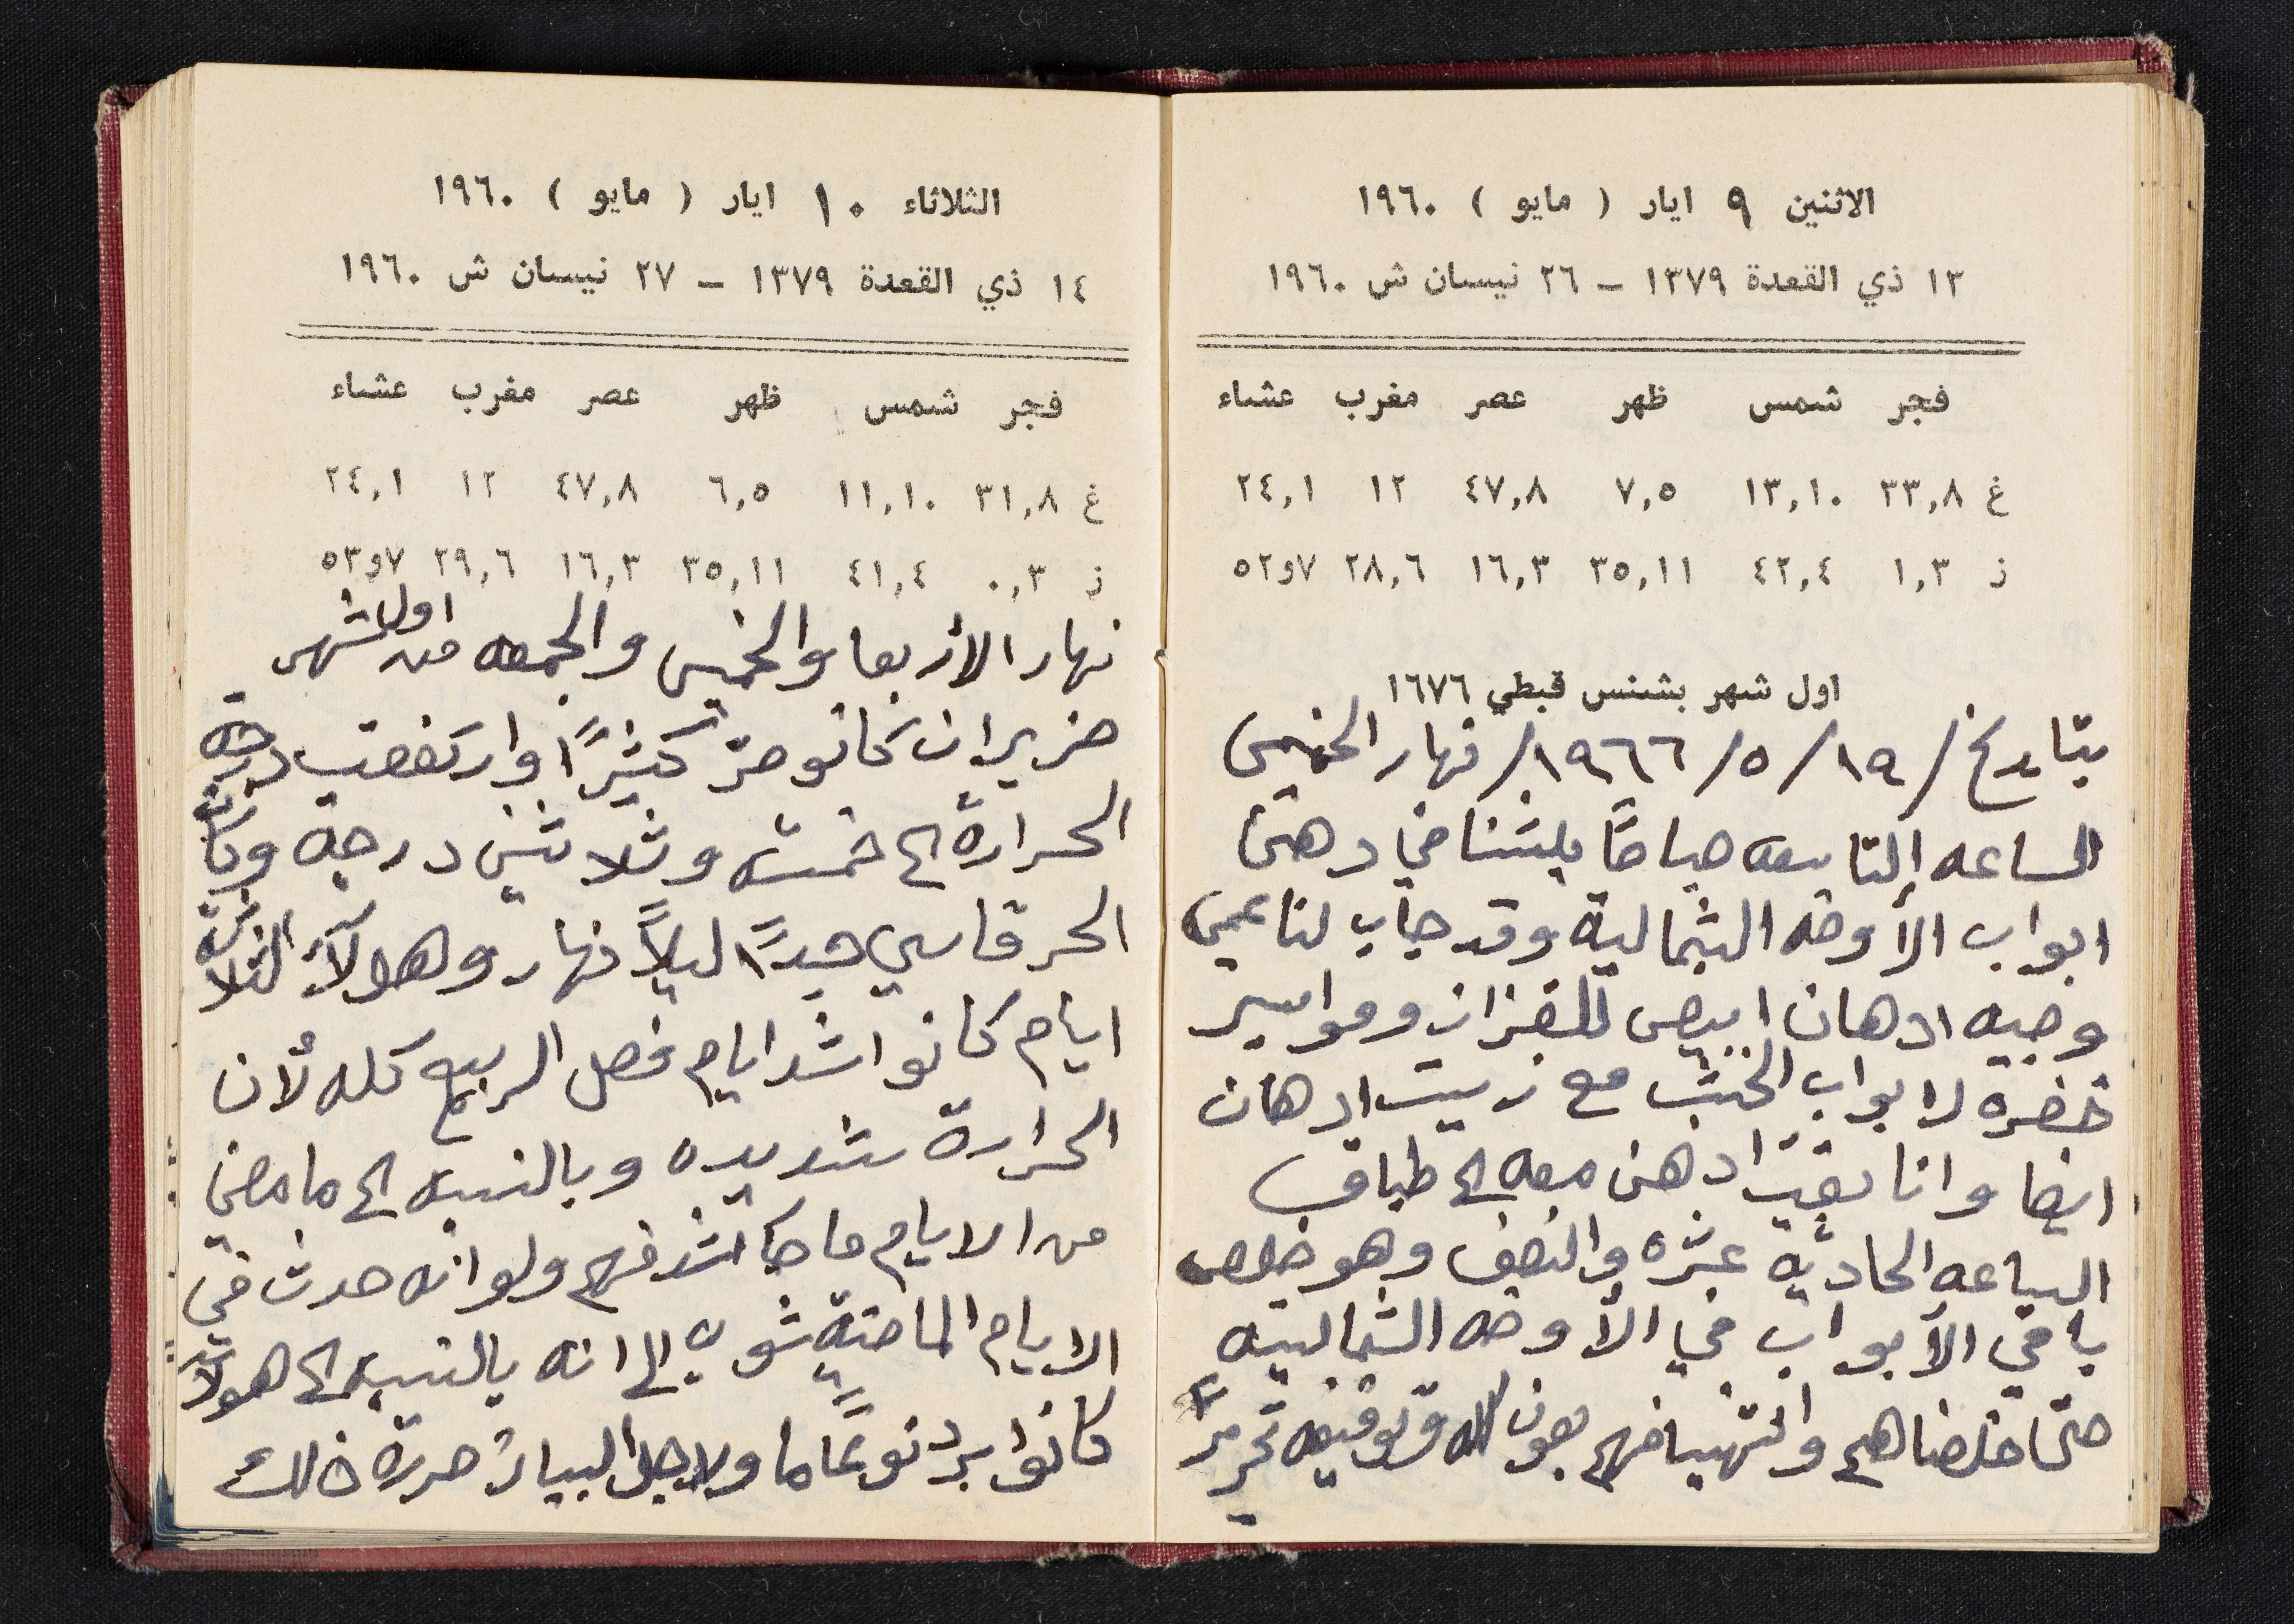 الاثنين ٩ ايار ( مايو ) ١٩٦٠
١٣ ذي القعدة ١٣٧٩ – ٢٦ نيسان ش ١٩٦٠
فجر شمس ظهر عصر مغرب عشاء
غ ٣٣,٨ ١٣,١٠ ٧,٥ ٤٧,٨ ١٢ ٢٤,١
ز ١,٣ ٤٢,٤ ٣٥,١١ ١٦,٣ ٢٨,٦ ٧و٥٢
اول شهر بشنس قبطي ١٦٧٦
بتاريخ /١٩/٥/١٩٦٦/ نهار الخميس
الساعه التاسعه صباحًا بلشنا في دهن
ابواب الأوضه الشمالية وقد جاب لنا عمي
وجيه ادهان ابيض للقزاز ومواسير
خضره لابواب الخشب مع زيت ادهان
ايضا وانا بقيت ادهن معه الى طياف
الساعه الحاديه عشره والنصف وهو خلص
باقي الأبواب في الأوضه الشماليه
حتى خلصناهم وانتهينا منهم بعون الله وتوفيقه تحريرًا
الثلاثاء ١٠ ايار ( مايو ) ١٩٦٠
١٤ ذي القعدة ١٣٧٩ – ٢٧ نيسان ش ١٩٦٠
فجر شمس ظهر عصر مغرب عشاء
غ ٣١,٨ ١١,١٠ ٦,٥ ٤٧,٨ ١٢ ٢٤,١
ز ٠,٣ ٤١,٤ ٣٥,١١ ١٦,٣ ٢٩,٦ ٧و٥٣
نهار الأربعا والخميس والجمعه من اول شهر
حزيران كانو حرّ كثيرًا وارتفعت درجة
الحرارة الى خمسه وثلاثين درجة وكان
الحر قاسي جدًا ليلاً نهار وهولآء الثلاثة
ايام كانو اشد ايام فصل الربيع كله لأن
الحرارة شديده وبالنسبه الى ما مضى
من الايام ما جا اشد منهم ولو انه حدث في
الايام الماضية شوب الى انه بالنسبه الى هولاء
كانوا برد نوعًا ما ولاجل البيان حررة ذلك